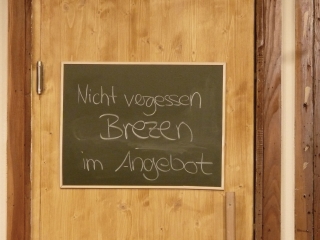 Nicht vergessen
Brezen
im Angebot